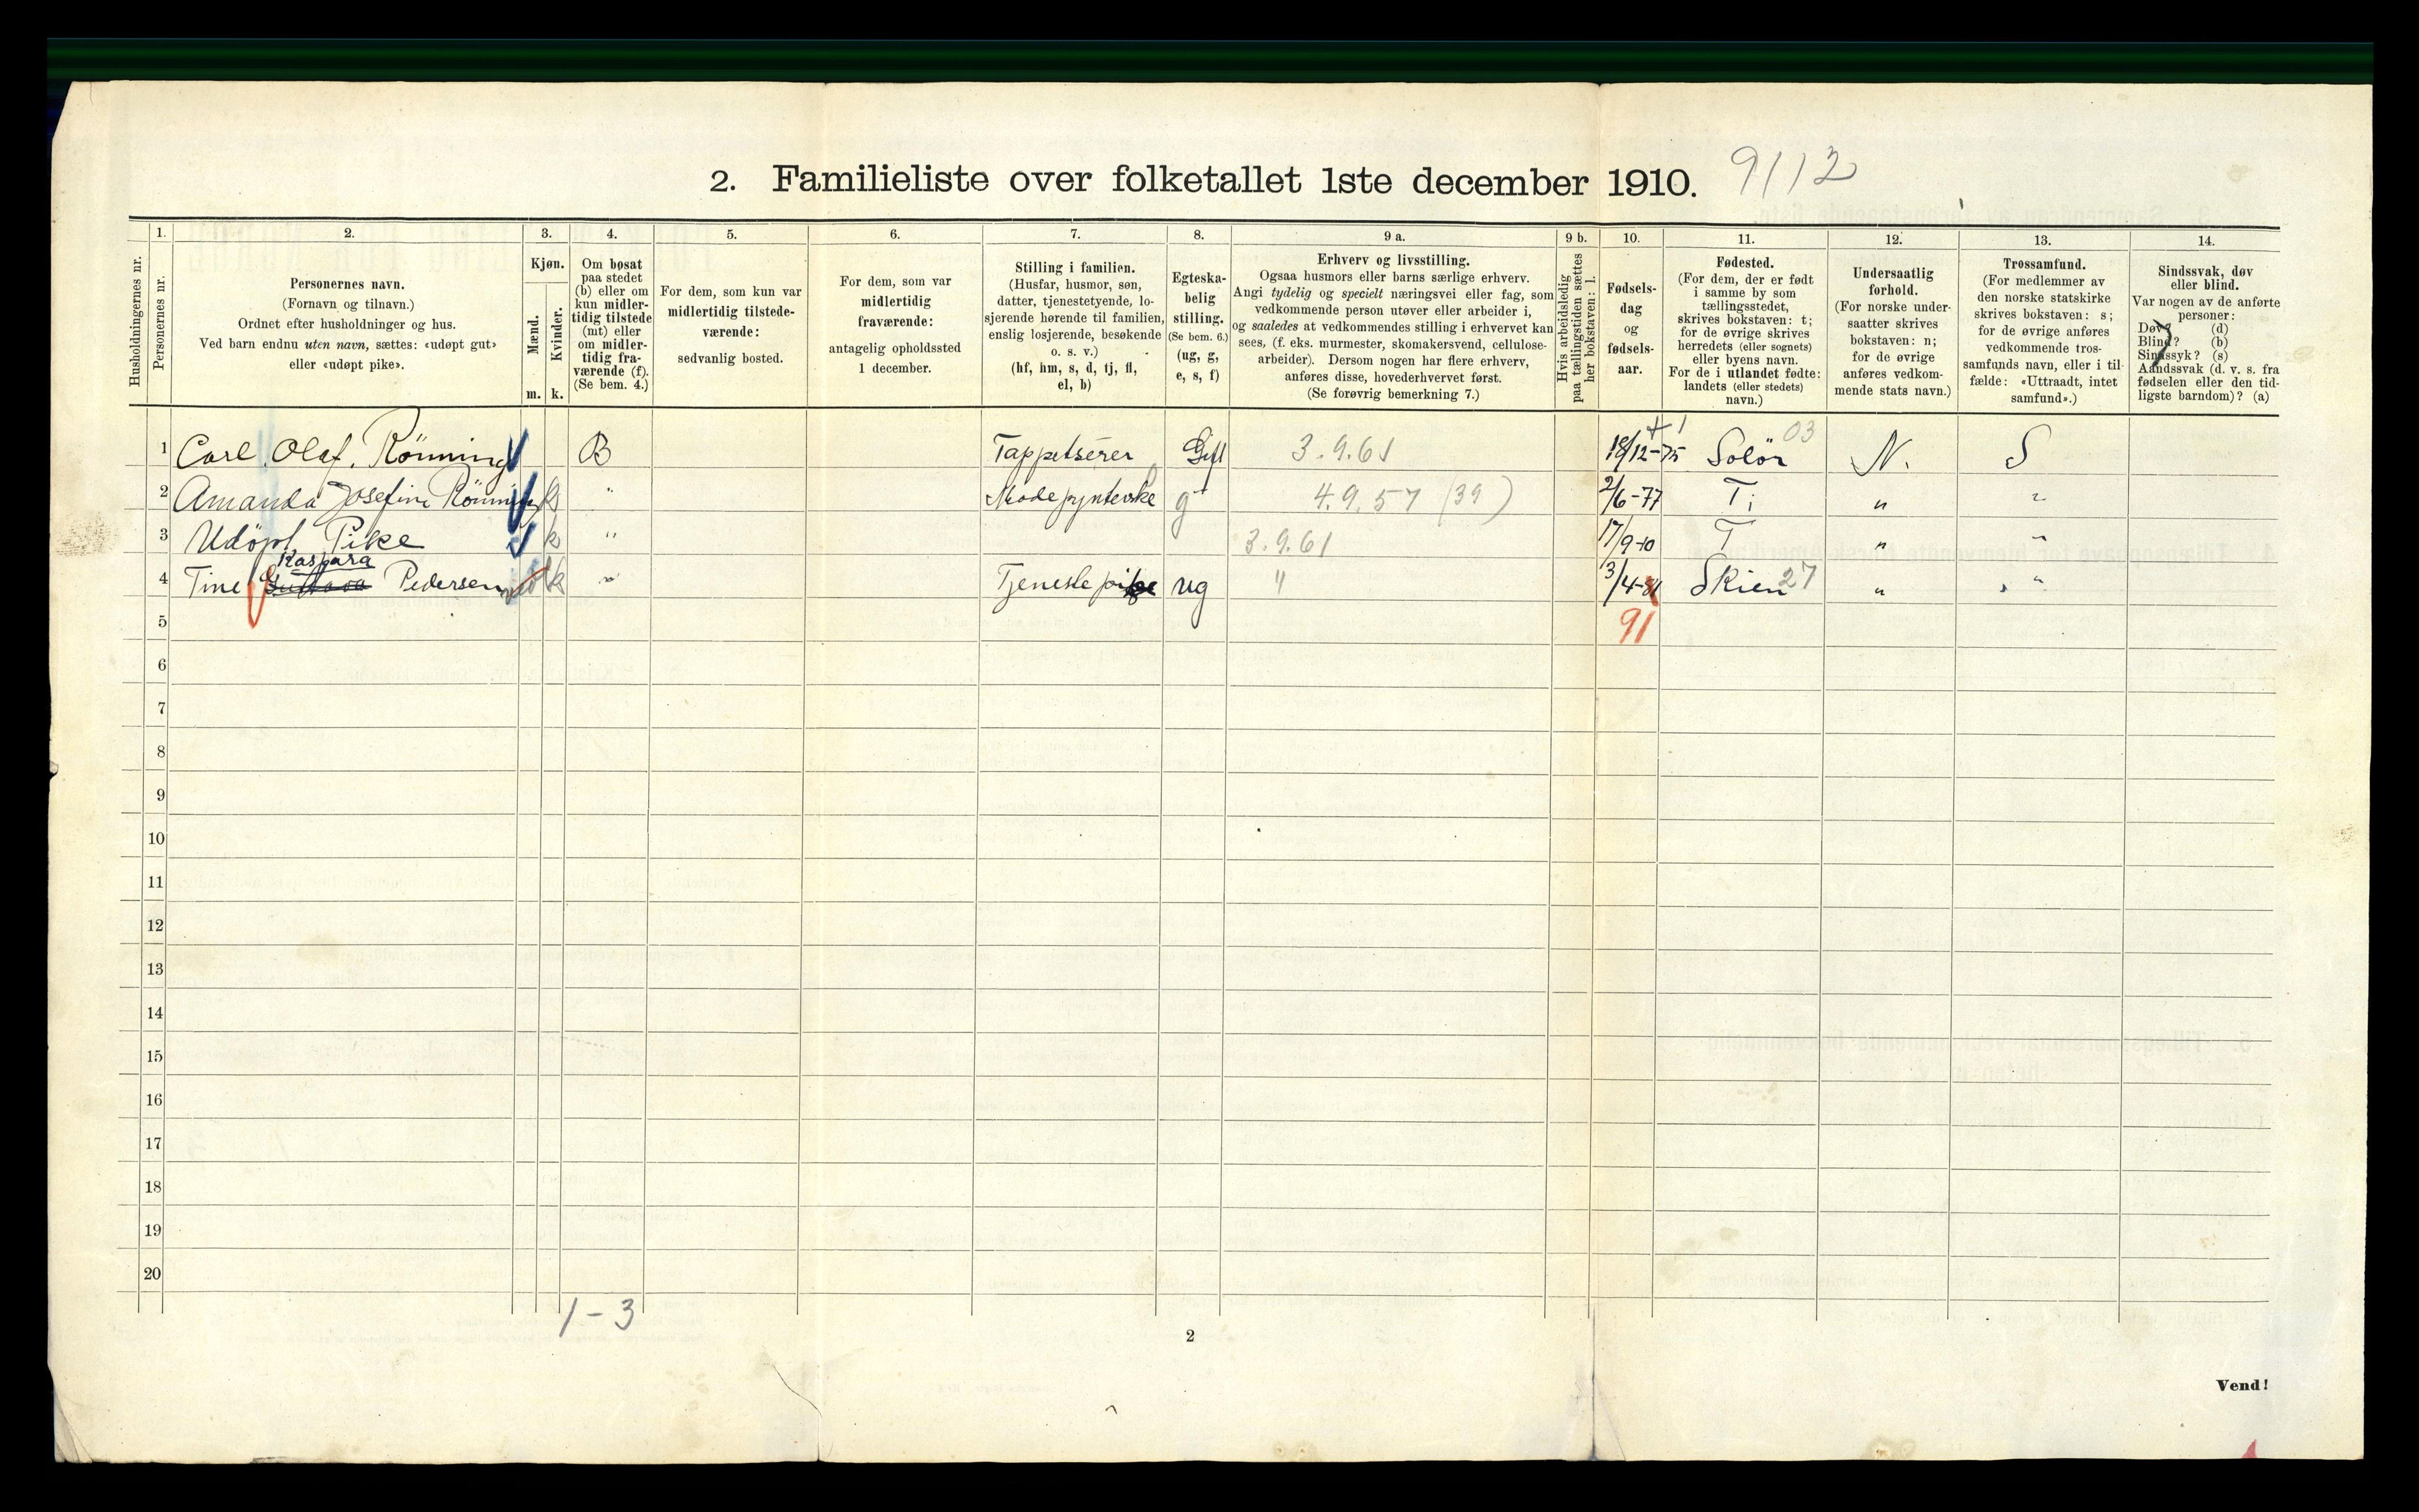 2. Familieliste over folketallet 1ste december 1910. 9112
Husholdningernes nr.
1. Personernes nr.
2. Personernes navn.
(Fornavn og tilnavn.)
Ordnet efter husholdninger og hus.
Ved barn endnu uten navn, sættes: «udøpt gut»
eller «udøpt pike».
3. Kjøn.
Mænd. m.
Kvinder. k.
4. Om bosat
paa stedet
(b) eller om
kun midler-
tidig tilstede
(mt) eller
om midler-
tidig fra-
værende (f).
(Se bem. 4.)
5. For dem, som kun var
midlertidig tilstede-
værende:
sedvanlig bosted.
6. For dem, som var
midlertidig
fraværende:
antagelig opholdssted
1 december.
7. Stilling i familien.
(Husfar, husmor, søn,
datter, tjenestetyende, lo-
sjerende hørende til familien,
enslig losjerende, besøkende
o. s. v.)
(hf, hm, s, d, tj, fl,
el, b)
8. Egteska-
belig
stilling.
(Se bem. 6.)
(ug, g,
e, s, f)
9 a. Erhverv og livsstilling.
Ogsaa husmors eller barns særlige erhverv.
Angi tydelig og specielt næringsvei eller fag, som
vedkommende person utøver eller arbeider i,
og saaledes at vedkommendes stilling i erhvervet kan
sees, (f. eks. murmester, skomakersvend, cellulose-
arbeider). Dersom nogen har flere erhverv,
anføres disse, hovederhvervet først.
(Se forøvrig bemerkning 7.)
9 b. Hvis arbeidsledig
paa tællingstiden sættes
her bokstaven: l.
10. Fødsels-
dag
og
fødsels-
aar.
11. Fødested.
(For dem, der er født
i samme by som
tællingsstedet,
skrives bokstaven: t;
for de øvrige skrives
herredets (eller sognets)
eller byens navn.
For de i utlandet fødte:
landets (eller stedets)
navn.)
12. Undersaatlig
forhold.
(For norske under-
saatter skrives
bokstaven: n;
for de øvrige
anføres vedkom-
mende stats navn.)
13. Trossamfund.
(For medlemmer av
den norske statskirke
skrives bokstaven: s;
for de øvrige anføres
vedkommende tros-
samfunds navn, eller i til-
fælde: «Uttraadt, intet
samfund».)
14. Sindssvak, døv
eller blind.
Var nogen av de anførte
personer:
Døv? (d)
Blind? (b)
Sindssyk? (s)
Aandssvak (d. v. s. fra
fødselen eller den tid-
ligste barndom)? (a)
1 Carl Olaf. Rönning B Tappetserer Gift 3.9.61 18/12-75 Solör 03 N. S
2 Amanda Josefine Rönning k " Modepynterske g 4.9.57 (39) 2/6-77 T " "
3 Udöpt Pike k " 3.9.61 17/9-10 T " "
Kaspara
4 Tine Pedersen k " Tjenestepike ug " 3/4-81 Skien 27 " "
5 91
6
7
8
9
10
11
12
13
14
15
16
17
18
19
20
1-3
2
Vend!